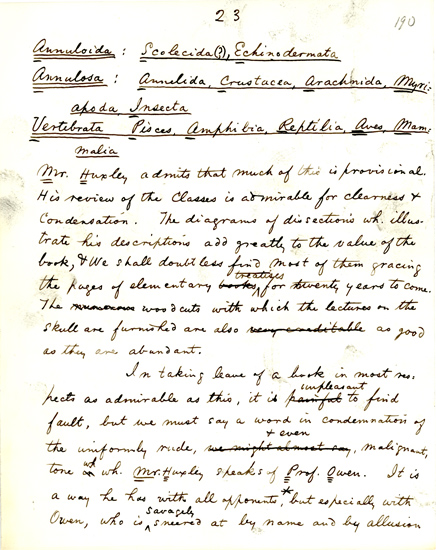 23
190
Annuloida : Scolecida(?), Echinodermata
Annulosa : Annelida, Crustacea, Arachnida, Myri-
apoda, Insecta
Vertebrata Pisces, Amphibia, Reptilia, Aves, Mam-
malia
Mr. Huxley admits that much of this is provisional.
His review of the Classes is admirable for clearness &
Condensation. The diagrams of dissections wh. illus-
trate his descriptions add greatly to the value of the
book, & We shall doubtless find most of them gracing
treatises
the pages of elementary books, for twenty years to come.
The numerous woodcuts with which the lectures on the
skull are furnished are also very creditable as good
as they are abundant.
In taking leave of a book in most res-
unpleasant
pects as admirable as this, it is painful to find
fault, but we must say a word in condemnation of
& even
the uniformly rude, we might almost say, malignant,
tone wh. Mr. Huxley speaks of Prof. Owen. It is
a way he has with all opponents,* but especially with
savagely
Owen, who is sneered at by name and by allusion